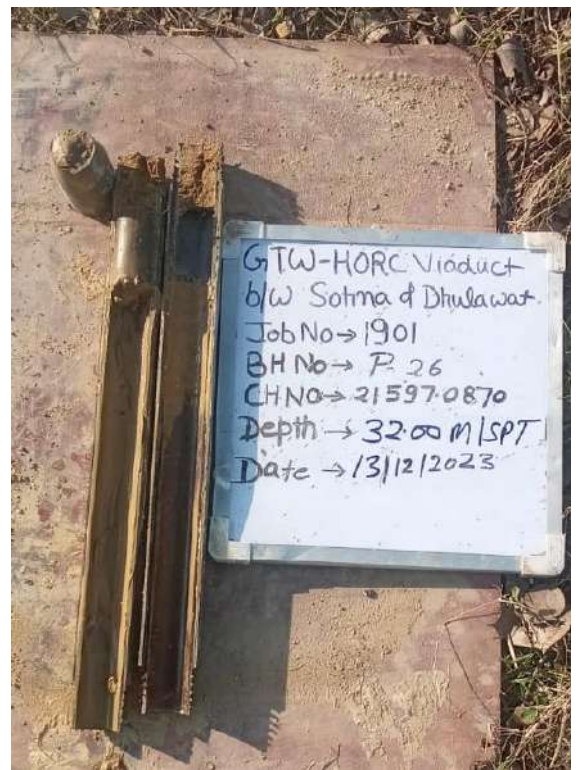 GTW-HORC Viaduct
b/w Sohna & Dhulawat.
Job No → 1901
BH No → P-26
CH NO → 21597.0870
Depth → 32.00 M/SPT
Date → 13/12/2023